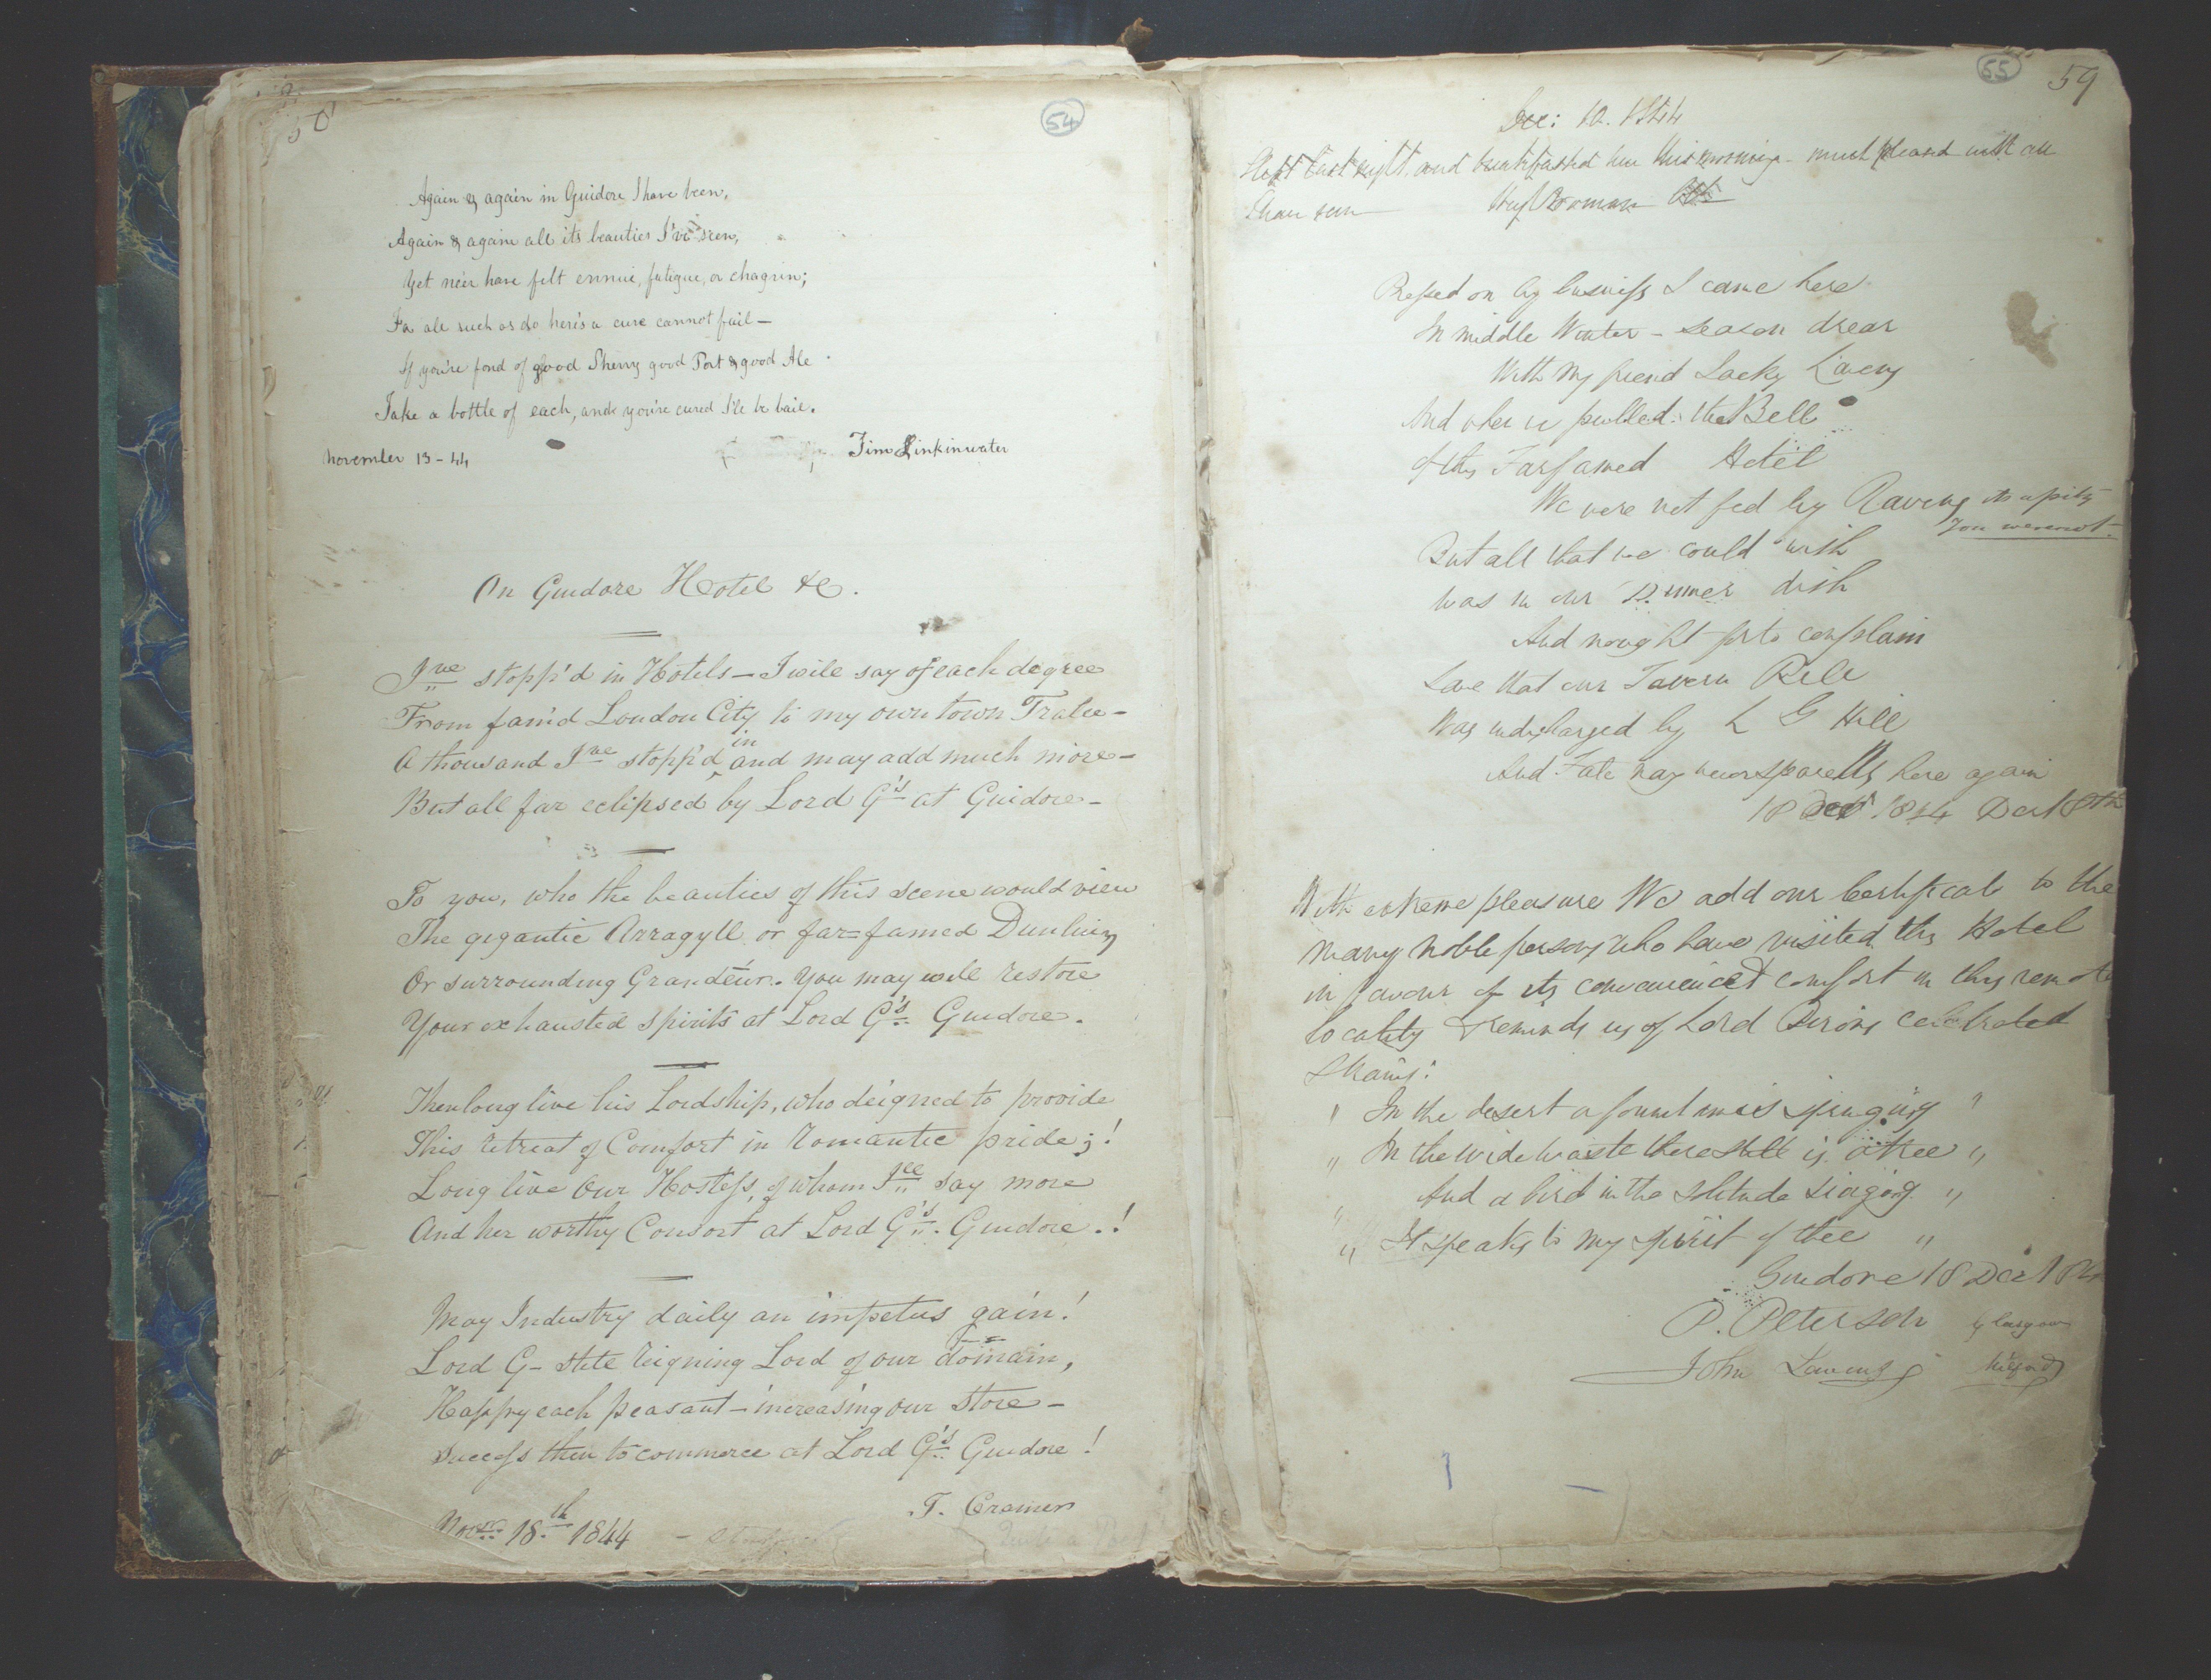 50
54
Again & again in Guidore I have been,
Again & again all its beauties I've seen,
Yet ne'er have felt ennui, fatigue, or chagrin;
For all such as do here's a cure cannot fail—
If you're fond of good Sherry good Port & good Ale
Take a bottle of each, and you're cured I'll be bail.
November 13-44
Tim Linkinwater
On Guidore Hotel &c.
I've stopp'd in Hotels—I will say of each degree
From fam'd London City to my own town Tralee—
A thousand I've stopp'd in and may add much more—
But all far eclipsed by Lord G's at Guidore—
To you, who the beauties of this scene would view
The gigantic Arragyll or far=famed Dunluiny
Or surrounding Grandeur. You may well restore
Your exhausted spirits at Lord G's Guidore.
Then long live his Lordship, who deigned to provide
This retreat of Comfort in romantic pride;!
Long live Our Hostess, of whom I'll say more
And her worthy Consort at Lord G's. Guidore.!
May Industry daily an impetus gain!
Lord G— still reigning Lord of our domain,
Happy each peasant—increasing our store—
Success then to commerce at Lord G's Guidore!
T. Cramer
Novr. 18th 1844
55
59
Dec: 10. 1844
Slept last night and breakfasted here this morning— much pleased with all
I have seen
Pressed on by business I came here
In middle Winter—season drear
With my friend Jacky Laveny
And when we pulled the Bell
of this Farfamed Hotel
We were not fed by Ravens its a pity
you were not.
But all that we could wish
Was in our Dinner dish
And nought for to complain
Save that our Tavern Bill
Was undercharged by L G Hill
And Fate may never spare Us here again
18 Decr 1844 Dec 18th
With extreme pleasure We add our Certificate to the
many noble persons who have visited this Hotel
in favour of its convenience & comfort in this remote
locality & reminds us of Lord Birons celebrated
Strains:
" In the desert a fount is springing "
" In the wide waste there still is a tree "
" And a bird in the solitude singing "
" It speaks to my spirit of thee "
Guidore 18 Dec 184
P. Peterson Glasgow
John